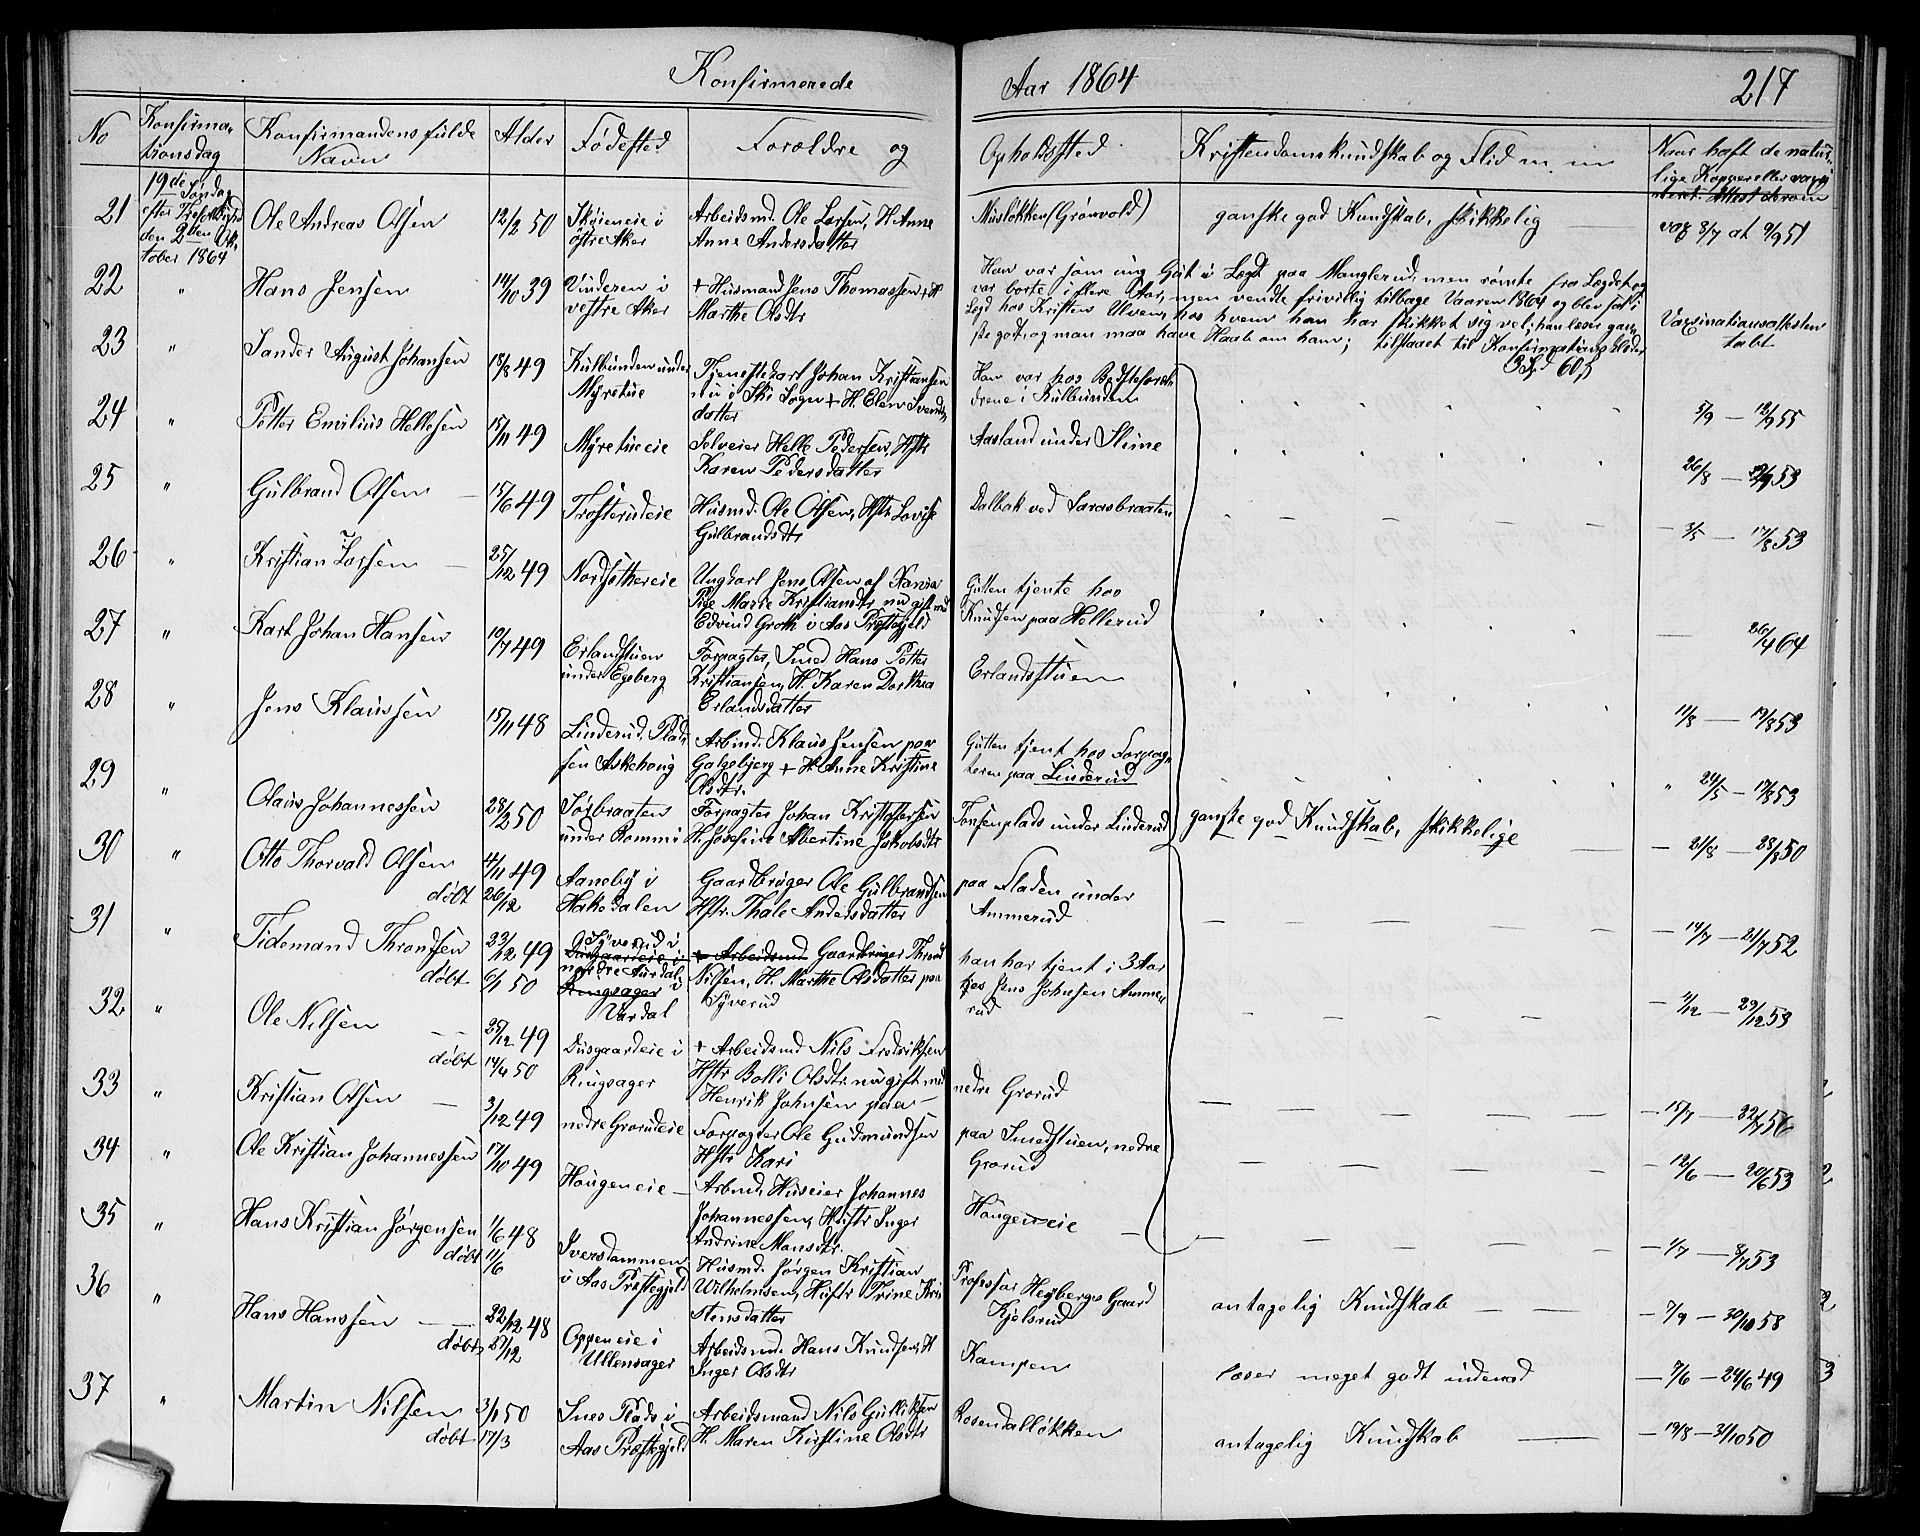 Konfirmerede Aar 1864 217
No Konfirma- Konfirmandens fulde Alder Fødested Forældre og Opholdssted. Kristendomskundskab og Flid m. m. Naar haft de natur-
tionsdag Navn lige Kopper eller vacci
19de Søndag
efter Trefoldighed
den 2den Ok-
tober 1864
21 Ole Andreas Olsen 12/2 50 Skøieneie i Arbeidsmd. Ole Larsen, H. Anne Munkedamsveien
østre Aker Anne Andersdatter
Musløkken (Grønvold) ganske god Kundskab, skikkelig vax 3/7 at 9/9 51
22 " Hans Jensen 14/10 39 Vinderen i + Husmand Jens Thomassen + H
vestre Aker Marthe Olsdtr
Han var som ung Gut i Lægd paa Manglerud, men rømte fra Lægdet og
var borte i flere Aar, men vendte frivillig tilbage Vaaren 1864 og blev sat i
Lægd hos Kristen Ulven, hos hvem han har skikket sig vel; han læser gan-
ske godt og man maa have Haab om ham; tilstaaet til Konfirmations klæder
3 Spd 60 ß
Vaxinationsattesten
tabt
23 " Sander August Johansen 18/8 49 Kulbunden under Tjenestekarl Johan Kristiansen
Myrstue nu i Ski Sogn + H. Elen Svends-
datter
Han var hos Bedsteforæl-
drene i Kulbunden 5/9 — 12/9 55
24 " Petter Emilius Hellesen 15/11 49 Myrstueeie Selveier Helle Pedersen, Hstr
Karen Pedersdatter
Aasland under Stime 26/8 — 2/9 53
25 " Gulbrand Olsen — 15/6 49 Trosterudeie Husmd. Ole Olsen, Hstr. Lovise
Gulbrandsdt
Dalbak ved Sarasbraaten — 3/5 — 17/8 53
26 " Kristian Larsen — 25/12 49 Nordstheneie Ungkarl Jens Olsen af Xania
Pige Marie Kristiandtr, nu gift m
Edvind Groth i Aas Præstegjeld
Gutten tjente hos
Knudsen paa Hellerud — 26/4 64
27 " Karl Johan Hansen 10/7 49 Erlandstuen Forpagter, Smed Hans Petter
under Egeberg Kristiansen, H. Karen Dorthea
Erlandsdatter
Erlandsstuen 11/8 — 19/8 53
28 " Jens Klausen 15/11 48 Linderud. Plads Arbmd. Klaus Jensen paa
sen Askehaug Galgebjerg + H. Anne Kristine
Olsdtr.
Gutten tjent hos Forpag-
teren paa Linderud " 24/5 — 17/8 53
29 " Olaus Johannessen 28/2 50 Sørbraaten Forpagter Johan Kristoffersen
under Rommen H. Josefine Albertine Jakobsdtr
Tonsenplads under Linderud ganske god Kundskab, skikkelige — — 21/8 — 28/8 50
30 " Otto Thorvald Olsen 4/11 49 Aaneby i Gaardbruger Ole Gulbrandsen
døbt 26/12 Hakedalen Hstr. Thale Andersdatter
paa Fladen under
Ammerud — 14/7 — 21/7 52
31 " Tidemand Throndsen 23/12 49 Syverud i + Arbeidsmd Gaardbruger Thrond
døbt 6/1 50 nordre Aurdal Nilsen, H. Marthe Olsdatter paa
Ringsager i Syverud
Vardal
han har tjent i 3 Aar
hos Jens Johnsen Amme-
rud — 2/12 — 29/12 53
32 " Ole Nilsen — — 25/12 49 Disgaardeie i + Arbeidsmd Nils Fredriksen
døbt 14/4 50 Ringsager Hstr Bolli Olsdtr. nu gift med
Henrik Johnsen paa —
nedre Grorud — 15/7 — 22/7 56
33 " Kristian Olsen — 3/12 49 nedre Grorudeie Forpagter Ole Gudmundsen
Hstr Kari
paa Smedstuen, nedre
Grorud — 12/6 — 20/6 53
34 " Ole Kristian Johannessen 17/10 49 Haugeneie — Arbmd, Huseier Johannes
Johannessen, Hustr Inger
Andrine Monsdtr.
Haugeneie — — 1/7 — 8/7 53
35 " Hans Kristian Jørgensen 1/6 48 Iversdammen Husmd. Jørgen Kristian
døbt 11/6 i Aas Præstegjeld Wilhelmsen, Hustr Trine Kri
stensdatter
Professor Heybergs Gaard
Kjelsrud antagelig Kundskab — — — 7/9 — 30/10 58
36 " Hans Hansen — 22/12 48 Oppeneie i Arbeidsmd. Hans Knudsen, H
døbt 27/12 Ullensager Inger Olsdtr
Kampen læser meget godt udenad — 7/6 — 24/6 49
37 " Martin Nilsen 3/1 50 Snes Plads i Arbeidsmand Nils Gulliksen
døbt 17/3 Aas Præstegjeld H. Maren Kirstine Olsdtr
Rosendalløkken antagelig Kundskab — — 19/8 — 31/10 50